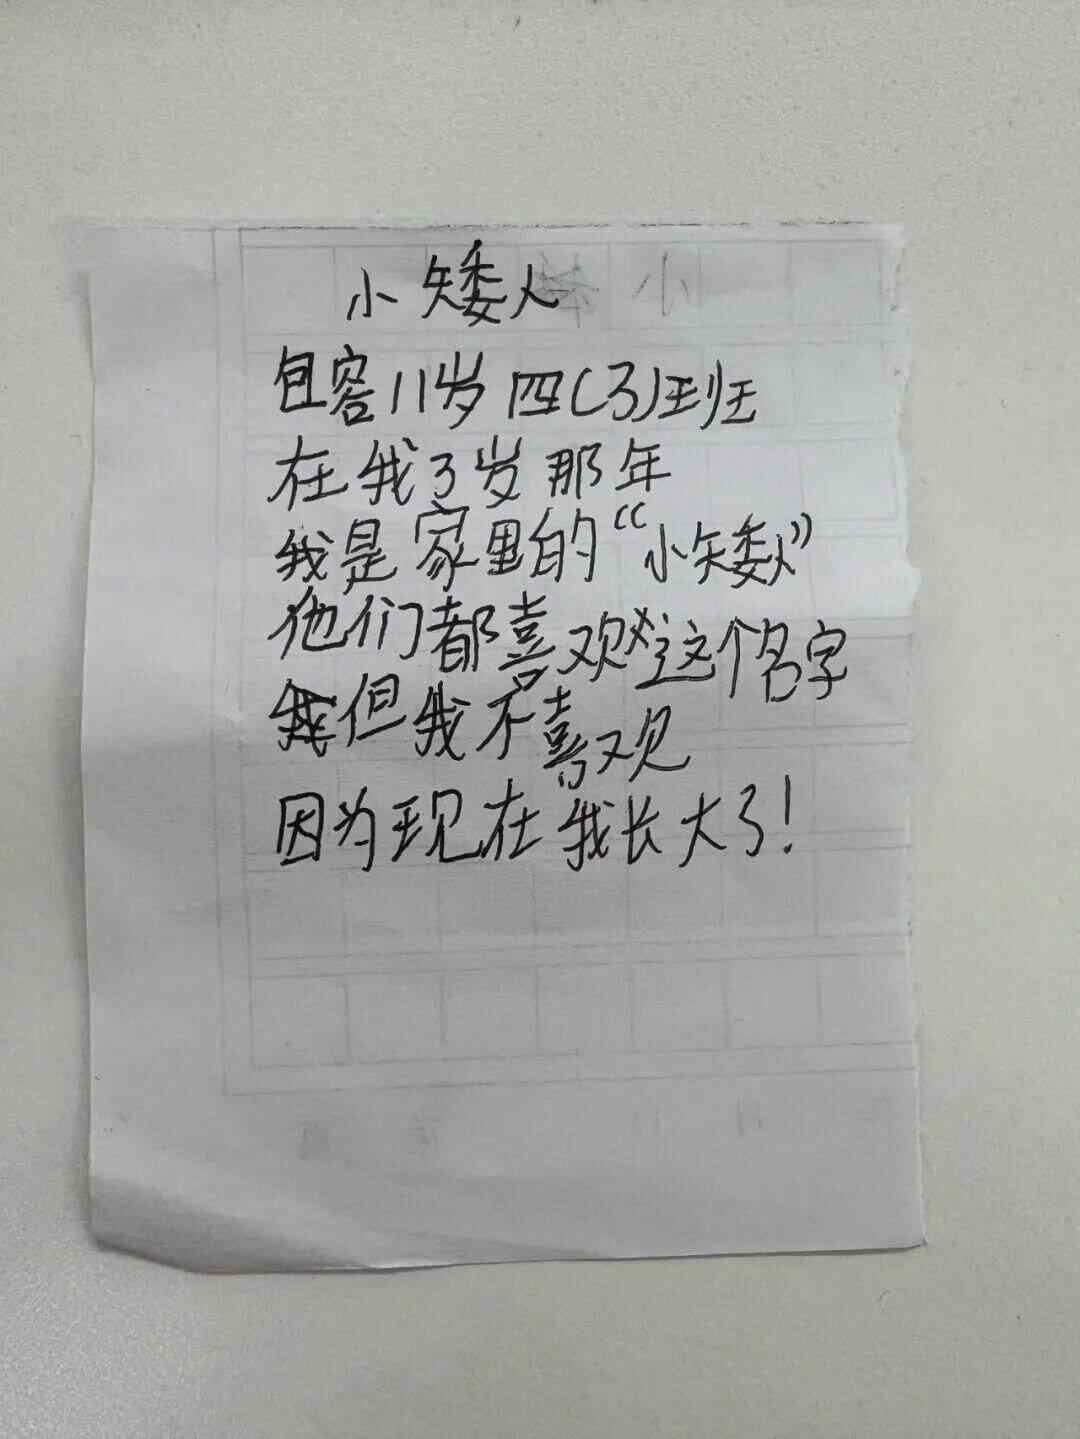 小矮人
包容11岁四(3)班
在我3岁那年
我是家里的“小矮人”
他们都喜欢这个名字
但我不喜欢
因为现在我长大了！